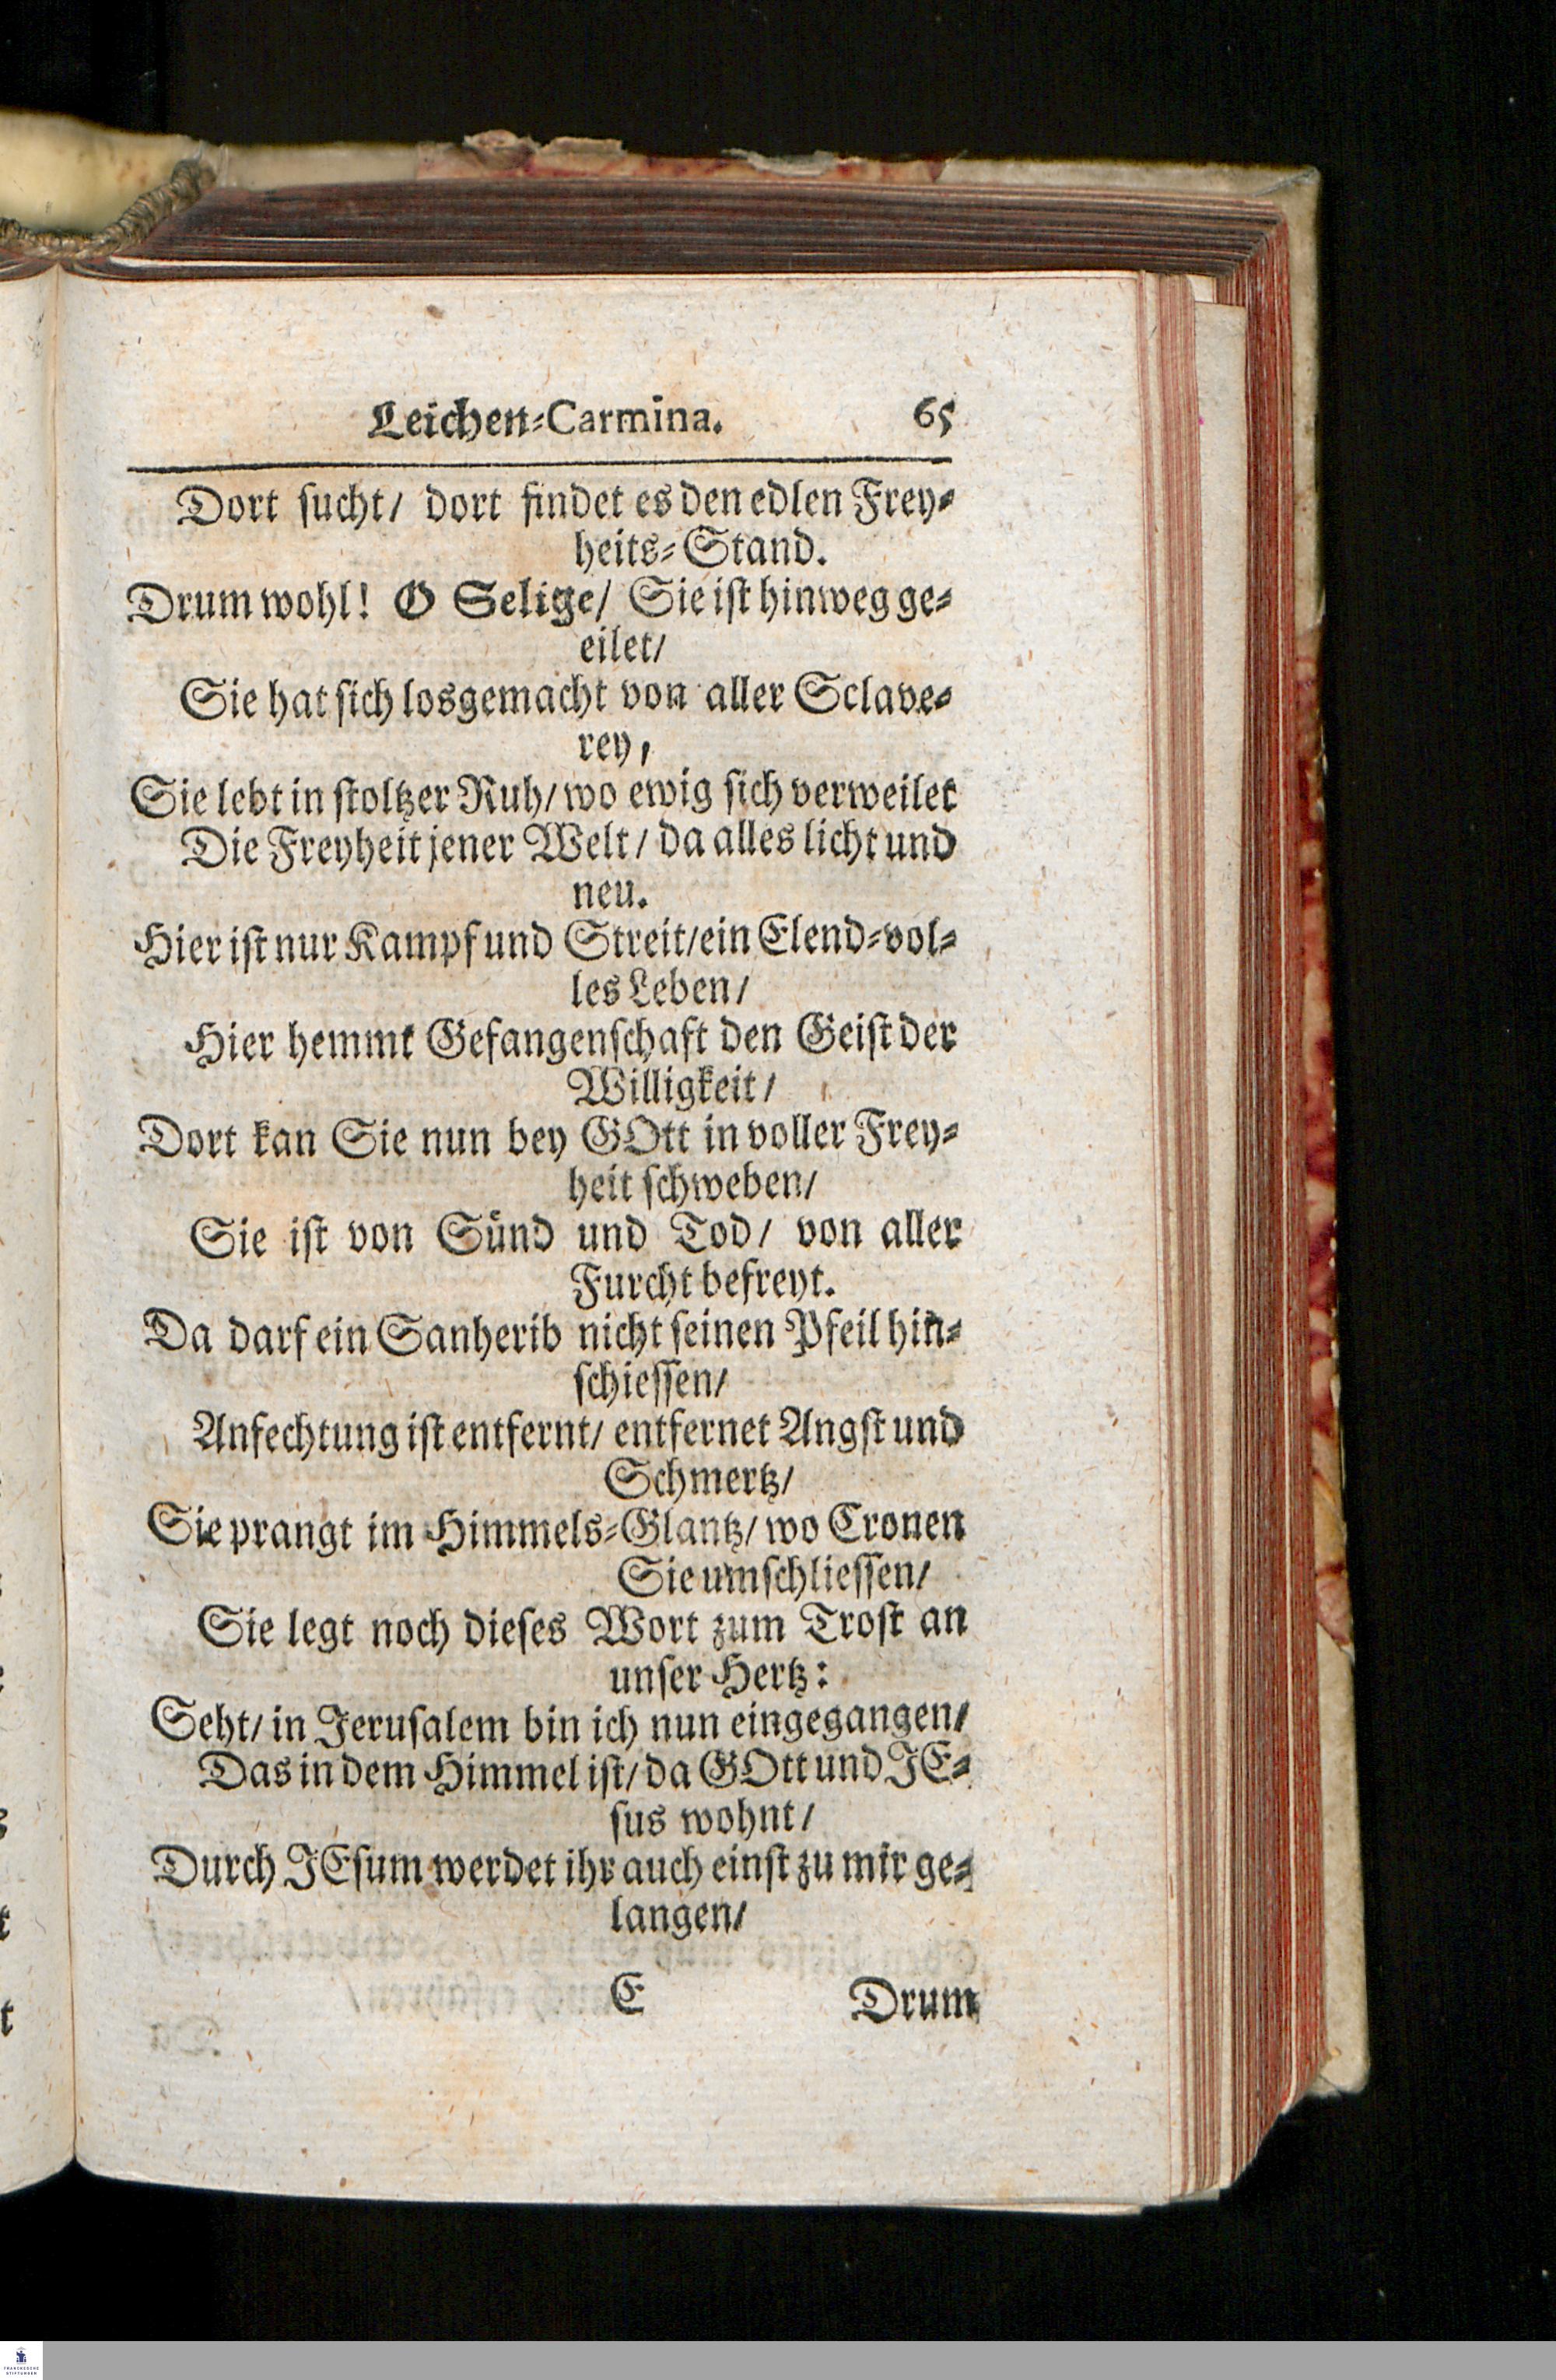 Leichen-Carmina. 65
Dort sucht/ dort findet es den edlen Frey-
heits-Stand.
Drum wohl! O Selige/ Sie ist hinweg ge-
eilet/
Sie hat sich losgemacht von aller Sclave-
rey,
Sie lebt in stoltzer Ruh/ wo ewig sich verweilet
Die Freyheit jener Welt/ da alles licht und
neu.
Hier ist nur Kampf und Streit/ ein Elend-vol-
les Leben/
Hier hemmt Gefangenschaft den Geist der
Willigkeit/
Dort kan Sie nun bey GOtt in voller Frey-
heit schweben/
Sie ist von Sünd und Tod/ von aller
Furcht befreyt.
Da darf ein Sanherib nicht seinen Pfeil hin-
schiessen/
Anfechtung ist entfernt/ entfernet Angst und
Schmertz/
Sie prangt im Himmels-Glantz/ wo Cronen
Sie umschliessen/
Sie legt noch dieses Wort zum Trost an
unser Hertz:
Seht/ in Jerusalem bin ich nun eingegangen/
Das in dem Himmel ist/ da GOtt und JE-
sus wohnt/
Durch JEsum werdet ihr auch einst zu mir ge-
langen/
E Drum
FRANCKESCHE
STIFTUNGEN